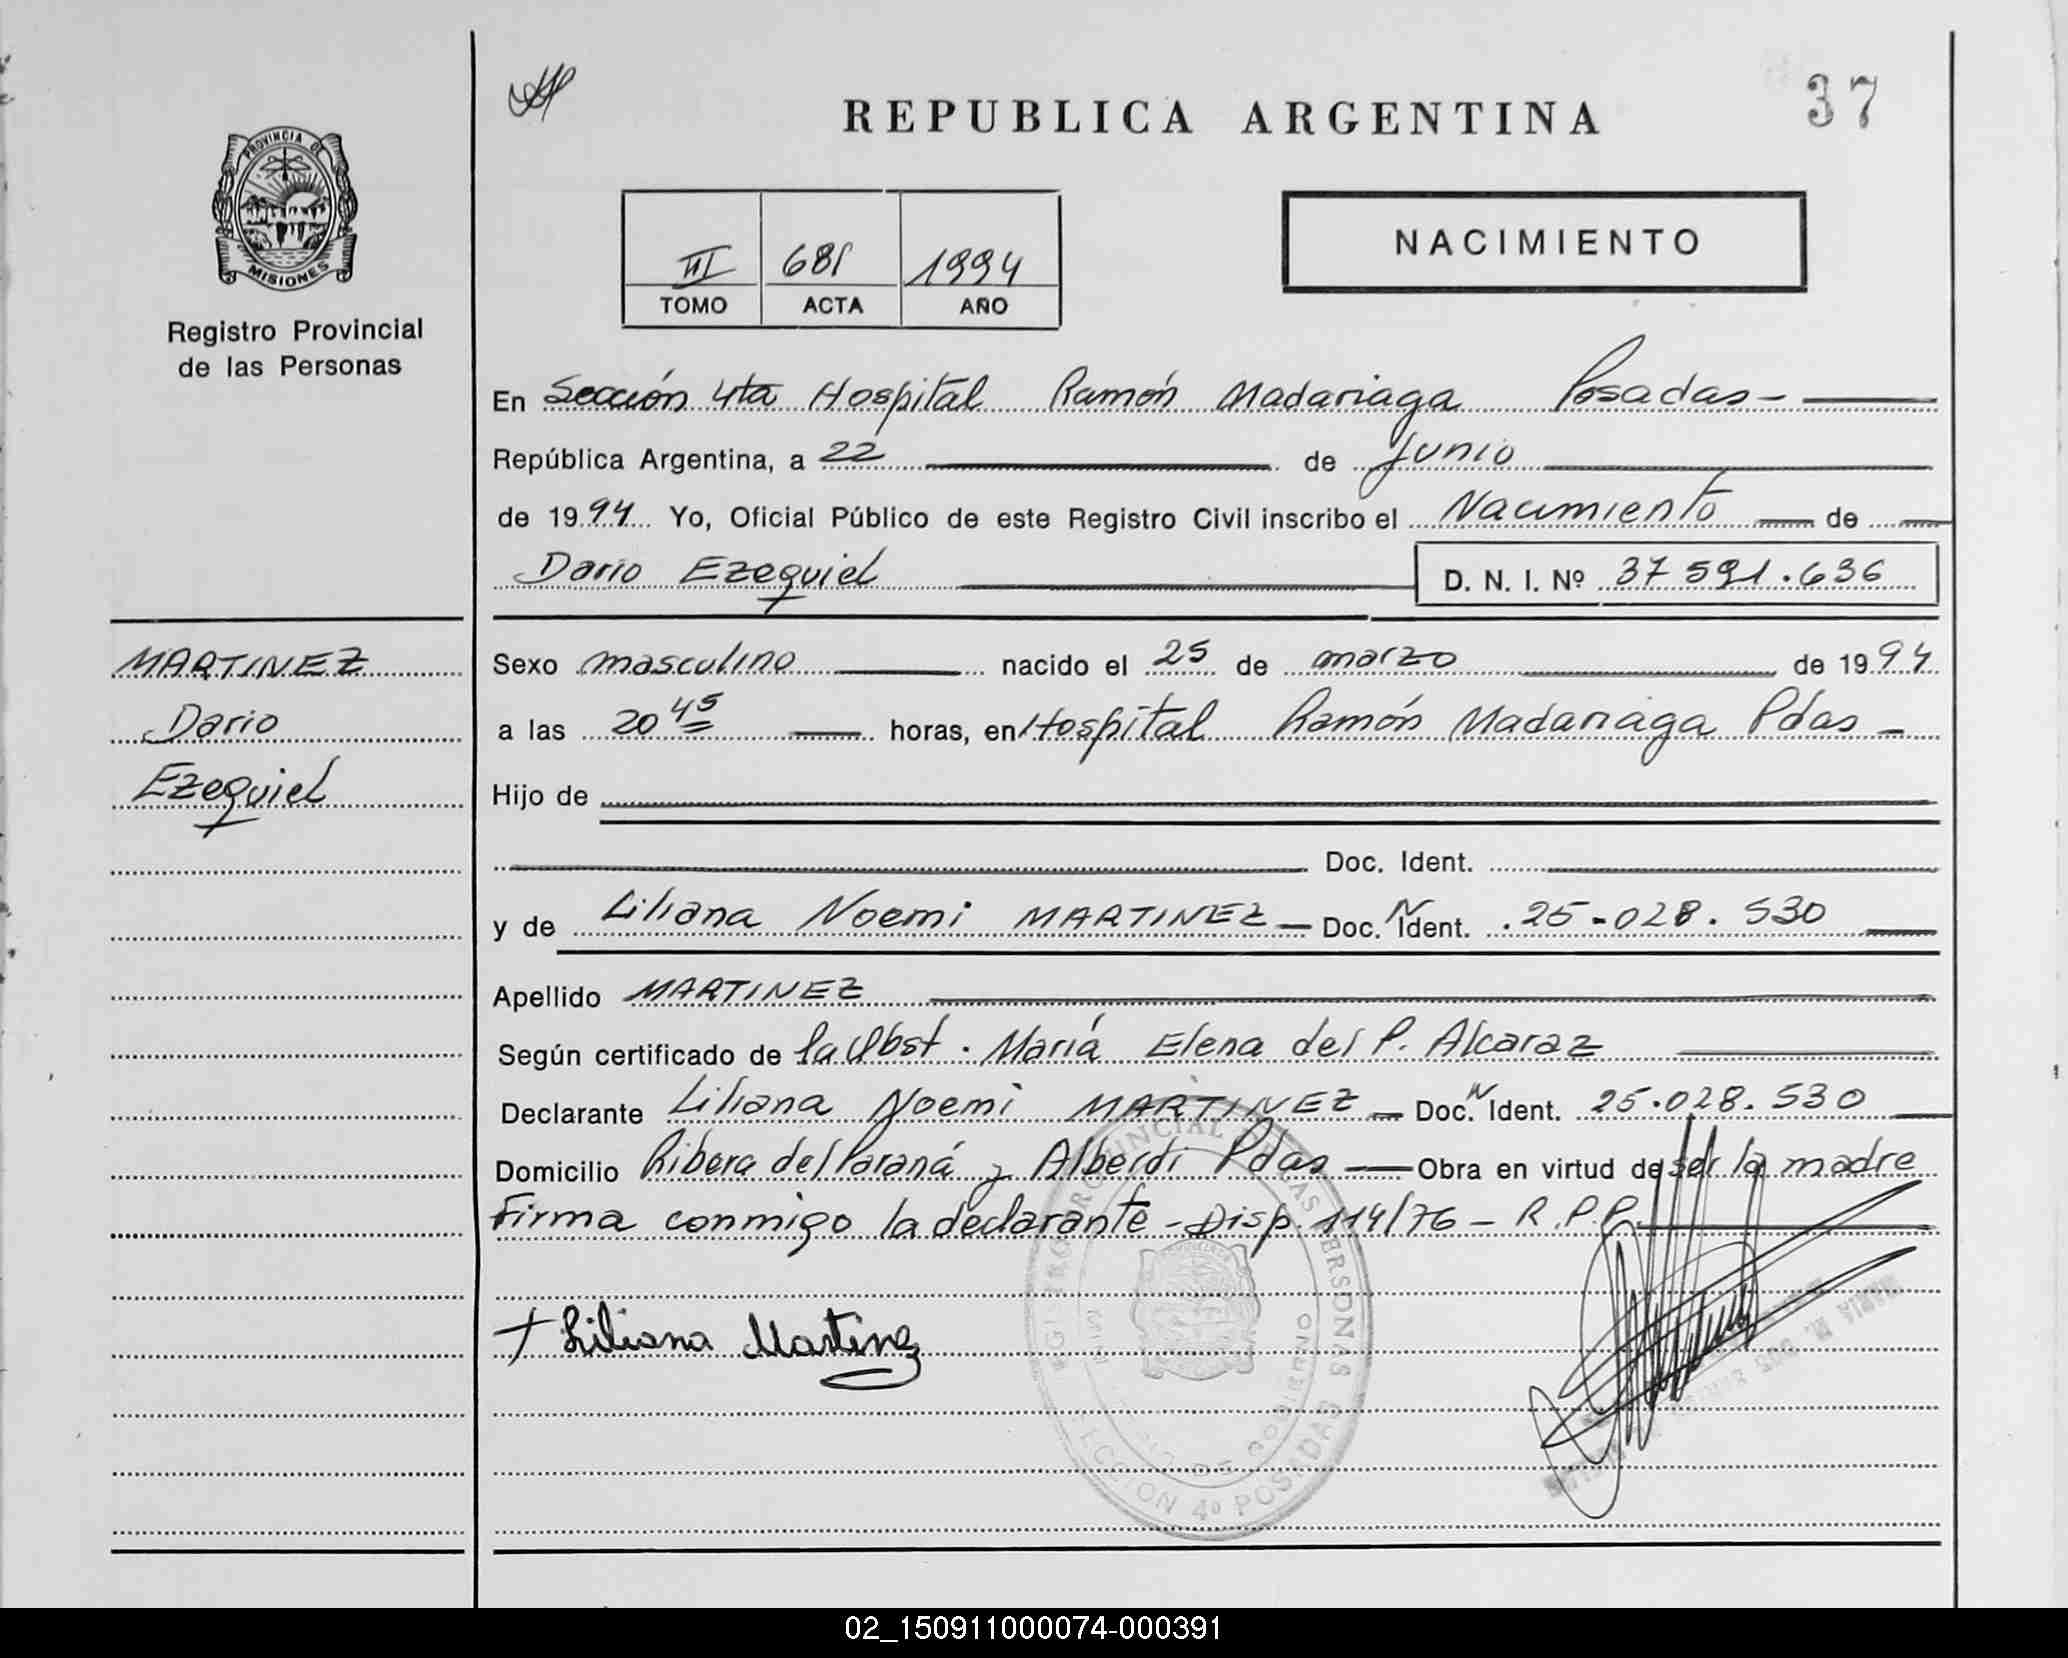 37
REPUBLICA ARGENTINA
PROVINCIA DE
MISIONES
Registro Provincial
de las Personas
NACIMIENTO
III 681 1994
TOMO ACTA AÑO
En Sección 4ta Hospital Ramón Madariaga Posadas-
República Argentina, a 22 de Junio
de 1994 Yo, Oficial Público de este Registro Civil inscribo el Nacimiento de
Dario Ezequiel D. N. I. Nº 37 591.636
MARTINEZ
Dario
Ezequiel
Sexo masculino nacido el 25 de marzo de 1994
a las 20 45 horas, en Hospital Ramón Madariaga Pdas -
Hijo de
Doc. Ident.
y de Liliana Noemi MARTINEZ - Doc. N Ident. 25-028.530
Apellido MARTINEZ
Según certificado de la Obst. Mariá Elena del P. Alcaraz
Declarante Liliana Noemi MARTINEZ - Doc. N Ident. 25.028.530
Domicilio Ribera del Paraná y Alberdi Pdas - Obra en virtud de ser la madre
Firma conmigo la declarante - Disp. 114/76 - R.P.P.
Liliana Martinez
PROVINCIAL DE LAS PERSONAS
DE GOBIERNO
4º POSADAS
MARIA M. DOS
02_150911000074-000391